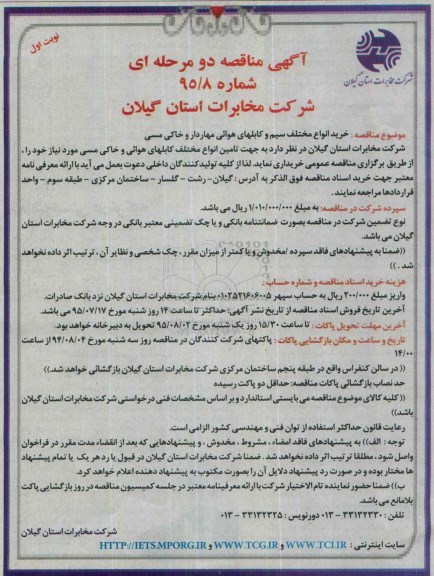 نوبت اول
آگهی مناقصه دو مرحله ای
شماره ۹۵/۸
شرکت مخابرات استان گیلان
شرکت مخابرات استان گیلان
موضوع مناقصه : خرید انواع مختلف سیم و کابلهای هوائی مهاردار و خاکی مسی
شرکت مخابرات استان گیلان در نظر دارد به جهت تامین انواع مختلف کابلهای هوائی و خاکی مسی مورد نیاز خود را ،
از طریق برگزاری مناقصه عمومی خریداری نماید. لذا از کلیه تولیدکنندگان داخلی دعوت بعمل می آید با ارائه معرفی نامه
معتبر جهت خرید اسناد مناقصه فوق الذکر به آدرس : گیلان- رشت - گلسار - ساختمان مرکزی - طبقه سوم - واحد
قراردادها مراجعه نمایند.
سپرده شرکت در مناقصه: به مبلغ ۱/۰۱۰/۰۰۰/۰۰۰ ریال می باشد.
نوع تضمین شرکت در مناقصه بصورت ضمانتنامه بانکی و یا چک تضمینی معتبر بانکی در وجه شرکت مخابرات استان
گیلان می باشد.
((ضمنا به پیشنهادهای فاقد سپرده /مخدوش و یا کمتر از میزان مقرر ، چک شخصی و نظایر آن ، ترتیب اثر داده نخواهد
شد . ))
هزینه خرید اسناد مناقصه و شماره حساب :
واریز مبلغ ۲۰۰/۰۰۰ ریال به حساب سپهر ۰۱۰۲۵۲۱۶۰۶۰۰۵ بنام شرکت مخابرات استان گیلان نزد بانک صادرات.
آخرین تاریخ فروش اسناد مناقصه از تاریخ نشر آگهی: حداکثر تا ساعت ۱۴ روز شنبه مورخ ۹۵/۰۷/۱۷ می باشد.
آخرین مهلت تحویل پاکات : تا ساعت ۱۵/۳۰ روز یک شنبه مورخ ۹۵/۰۸/۰۲ تحویل به دبیرخانه خواهد بود.
تاریخ و ساعت و مکان بازگشایی پاکات : پاکتهای شرکت کنندگان در مناقصه روز سه شنبه مورخ ۹۴/۰۸/۰۴ از ساعت
۱۴/۰۰
(( در سالن کنفراس واقع در طبقه پنجم ساختمان مرکزی شرکت مخابرات استان گیلان بازگشائی خواهد شد.))
حد نصاب بازگشائی پاکات مناقصه: حداقل دو پاکت رسیده
((کلیه کالای موضوع مناقصه می بایستی استاندارد و بر اساس مشخصات فنی درخواستی شرکت مخابرات استان گیلان
باشد))
رعایت قانون حداکثر استفاده از توان فنی و مهندسی کشور الزامی است.
توجه : الف)) به پیشنهادهای فاقد امضاء ، مشروط ، مخدوش ، و پیشنهادهایی که بعد از انقضاء مدت مقرر در فراخوان
واصل شود ، مطلقا ترتیب اثر داده نخواهد شد . ضمنا شرکت مخابرات استان گیلان در قبول یا رد هر یک یا تمام پیشنهاد
ها مختار بوده و در صورت رد پیشنهاد دلایل آن را بصورت مکتوب به پیشنهاد دهنده اعلام خواهد کرد.
ب)) ضمنا حضور نماینده تام الاختیار شرکت با ارائه معرفینامه معتبر در جلسه کمیسیون مناقصه در روز بازگشایی پاکت
بلامانع می باشد.
تلفن : ۳۳۱۳۲۳۳۰ - ۰۱۳ دورنویس : ۳۳۱۳۲۳۲۵ - ۰۱۳
شرکت مخابرات استان گیلان
سایت اینترنتی : WWW.TCI.IR و WWW.TCG.IR و HTTP://IETS.MPORG.IR